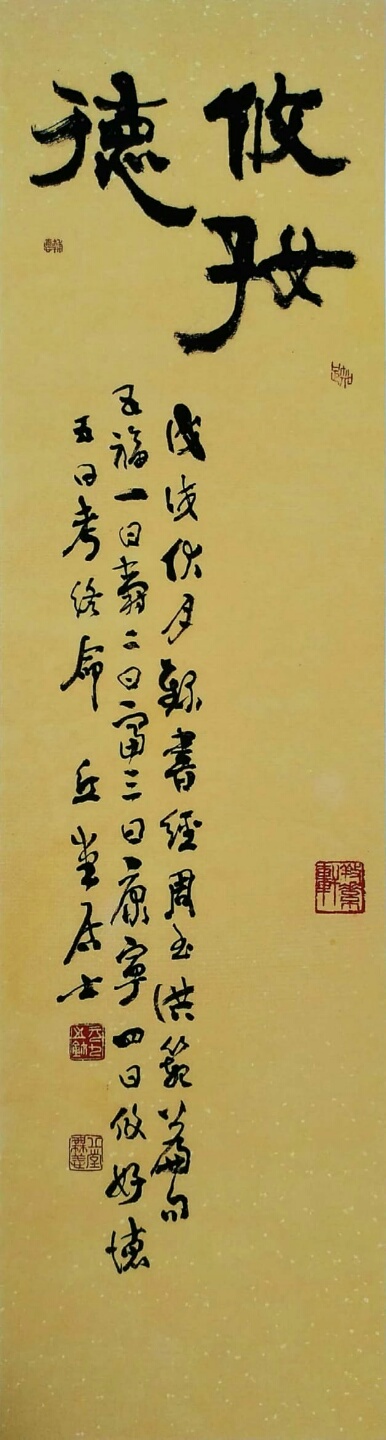 攸好
德
戊戌伏月録書經周書洪範篇句
五福一曰壽二曰富三曰康寧四曰攸好德
五曰考終命 丘堂居士